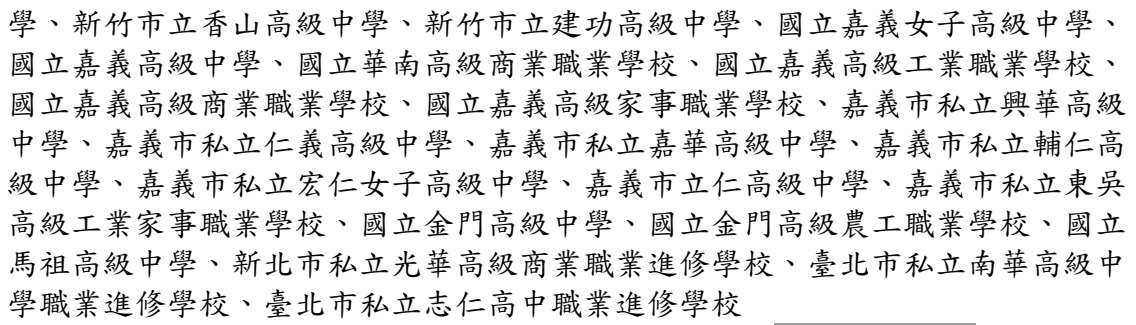 學、新竹市立香山高級中學、新竹市立建功高級中學、國立嘉義女子高級中學、
國立嘉義高級中學、國立華南高級商業職業學校、國立嘉義高級工業職業學校、
國立嘉義高級商業職業學校、國立嘉義高級家事職業學校、嘉義市私立興華高級
中學、嘉義市私立仁義高級中學、嘉義市私立嘉華高級中學、嘉義市私立輔仁高
級中學、嘉義市私立宏仁女子高級中學、嘉義市立仁高級中學、嘉義市私立東吳
高級工業家事職業學校、國立金門高級中學、國立金門高級農工職業學校、國立
馬祖高級中學、新北市私立光華高級商業職業進修學校、臺北市私立南華高級中
學職業進修學校、臺北市私立志仁高中職業進修學校